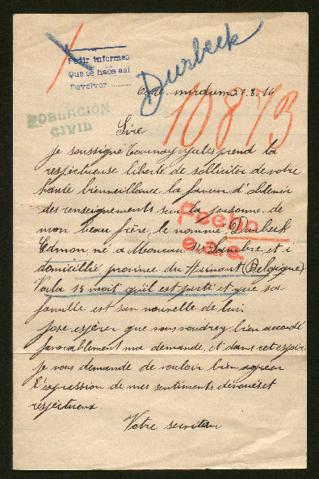 Pedir informes
Que se hace asi
Devolver
Durbeck
Oude-mirdum 27.8.15
10873
POBLACION
CIVIL
Sire
je soussigné Tournay Jules prend la
respectueuse liberté de solliciter de votre
haute bienveillance la faveur d'obtenir
des renseignements sur la personne de
mon beau frère, le nommé Durbeck
Edmon né a Monceau s/ Sambre et i
domicillié, province du Hainaut (Belgique)
Voila 13 moit qu'il est parti et que sa
famille est san nouvelle de lui.
jose espérer que vous voudrez bien accodé
favorablement ma demande, et dans cet espoir
je vous demande de vouloir bien agréer
l'expression de mes sentiments dévoués et
respectueux
Votre serviteur